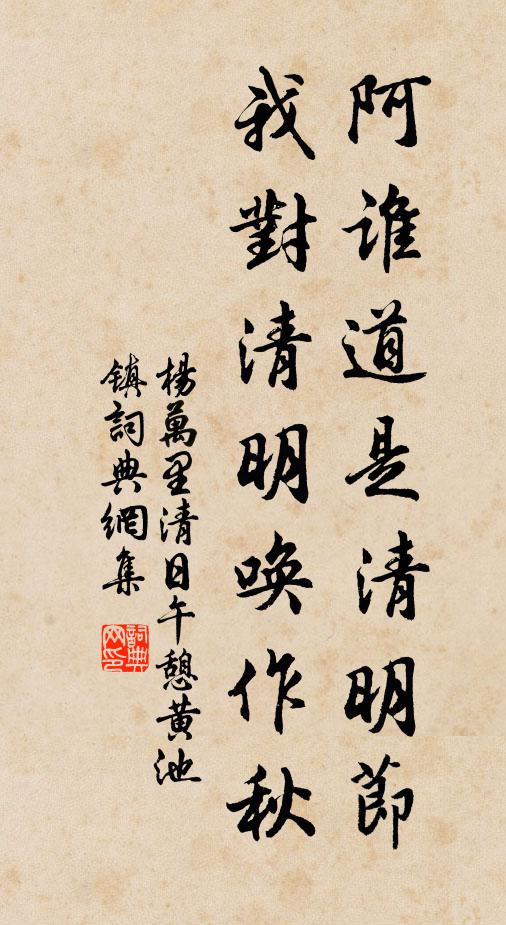 阿谁道是清明節
我對清明唤作秋
楊萬里清日午憩黄池
鎮詞典網集
詞典网印